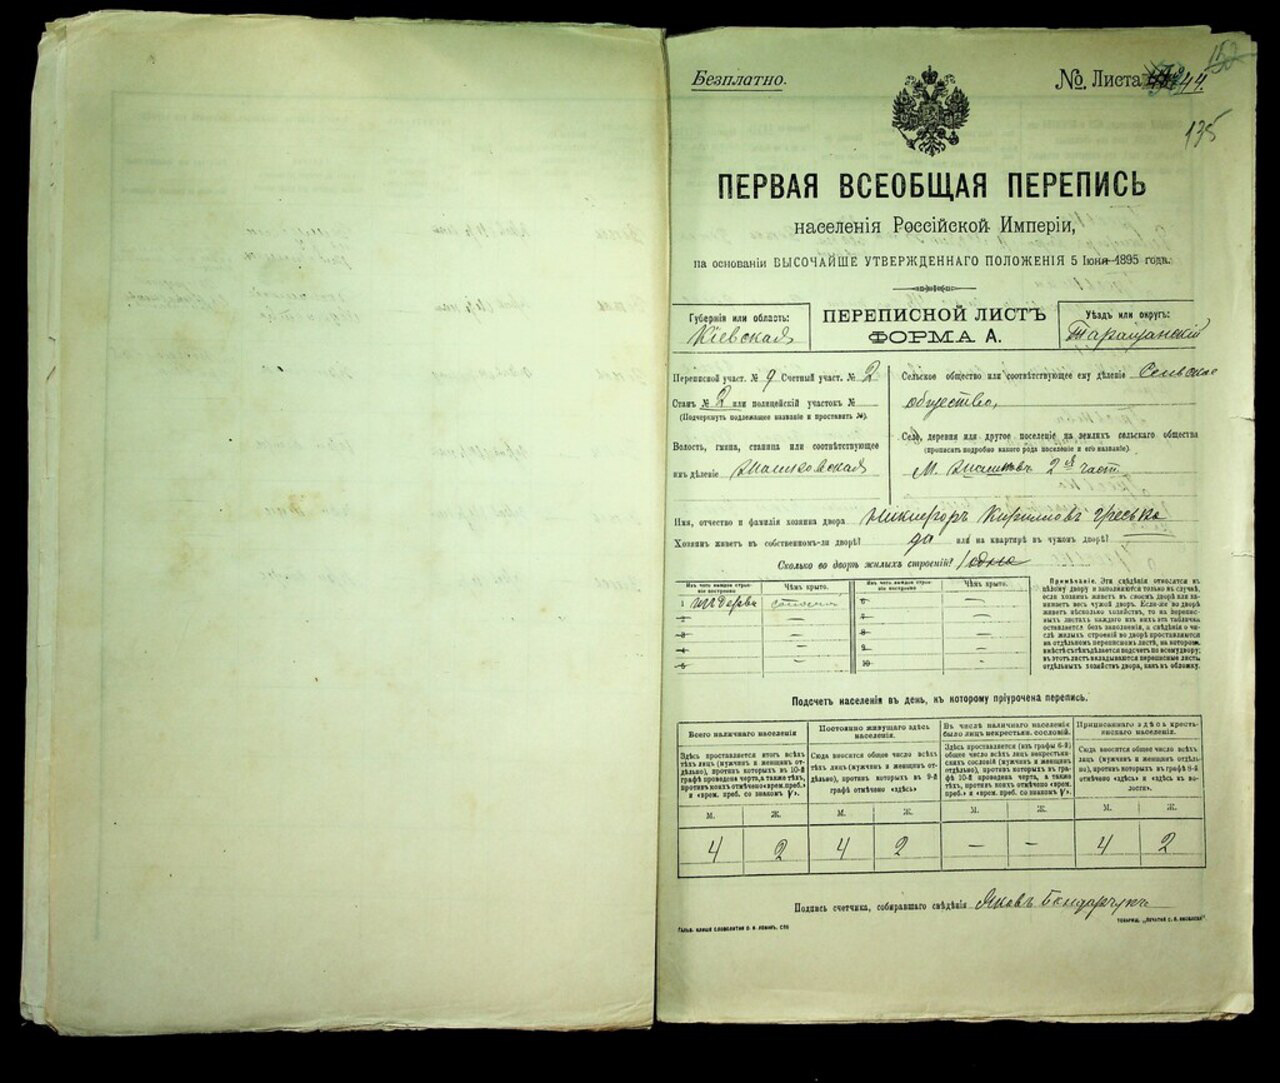 Безплатно.
№. Листа 44.
135
ПЕРВАЯ ВСЕОБЩАЯ ПЕРЕПИСЬ
населенія Россійской Имперіи,
на основаніи ВЫСОЧАЙШЕ УТВЕРЖДЕННАГО ПОЛОЖЕНІЯ 5 Іюня 1895 года.
Губернія или область:
Кіевская
ПЕРЕПИСНОЙ ЛИСТЪ
ФОРМА А.
Уѣздъ или округъ:
Таращанскій
Переписной участ. № 9 Счетный участ. № 2
Станъ № 2 или полицейскій участокъ №
(Подчеркнуть подлежащее названіе и проставить №).
Волость, гмина, станица или соотвѣтствующее
имъ дѣленіе
Сельское общество или соотвѣтствующее ему дѣленіе Сельское
общество,
Село, деревня или другое поселеніе на земляхъ сельскаго общества
(прописать подробно какого рода поселеніе и его названіе).
М. 2ая част
Имя, отчество и фамилія хозяина двора Никифоръ Кириловъ Греська
Хозяинъ живетъ въ собственномъ-ли дворѣ? да или на квартирѣ въ чужомъ дворѣ? —
Сколько во дворѣ жилыхъ строеній? 1 одно
Изъ чего каждое строеніе построено
Чѣмъ крыто.
Изъ чего каждое строеніе построено
Чѣмъ крыто.
1 изъ дерева соломой
2 —
3 —
4 —
5 —
6 —
7 —
8 —
9 —
10 —
Примѣчаніе. Эти свѣдѣнія относятся къ
цѣлому двору и заполняются только въ случаѣ,
если хозяинъ живетъ въ своемъ дворѣ или занимаетъ
весь чужой дворъ. Если-же во дворѣ
живетъ нѣсколько хозяйствъ, то на переписныхъ
листахъ каждаго изъ нихъ эта табличка
оставляется безъ заполненія, а свѣдѣнія о числѣ
жилыхъ строеній во дворѣ проставляются
на отдѣльномъ переписномъ листѣ, на которомъ
вмѣстѣ съ тѣмъ дѣлается подсчетъ по всему двору;
въ этотъ листъ вкладываются переписные листы
отдѣльныхъ хозяйствъ двора, какъ въ обложку.
Подсчетъ населенія въ день, къ которому пріурочена перепись.
Всего наличнаго населенія
Здѣсь проставляется итогъ всѣхъ
тѣхъ лицъ (мужчинъ и женщинъ отдѣльно),
противъ которыхъ въ 10-й
графѣ проведена черта, а также тѣхъ,
противъ коихъ отмѣчено «врем. преб.»
и «врем. преб. со знакомъ V».
Постоянно живущаго здѣсь
населенія.
Сюда вносится общее число всѣхъ
тѣхъ лицъ (мужчинъ и женщинъ отдѣльно),
противъ которыхъ въ 9-й
графѣ отмѣчено «здѣсь»
Въ числѣ наличнаго населенія
было лицъ некрестьян. сословій.
Здѣсь проставляется (изъ графы 6-й)
общее число всѣхъ лицъ некрестьянскихъ
сословій (мужчинъ и женщинъ
отдѣльно), противъ которыхъ въ графѣ
10-й проведена черта, а также
тѣхъ, противъ коихъ отмѣчено «врем.
преб.» и «врем. преб. со знакомъ V».
Приписаннаго здѣсь крестьянскаго
населенія.
Сюда вносится общее число всѣхъ
лицъ (мужчинъ и женщинъ отдѣльно),
противъ которыхъ въ графѣ 8-й
отмѣчено «здѣсь» и «здѣсь въ волости».
М. Ж. М. Ж. М. Ж. М. Ж.
4 2 4 2 — — 4 2
Подпись счетчика, собиравшаго свѣдѣнія Яковъ Бондарчукъ